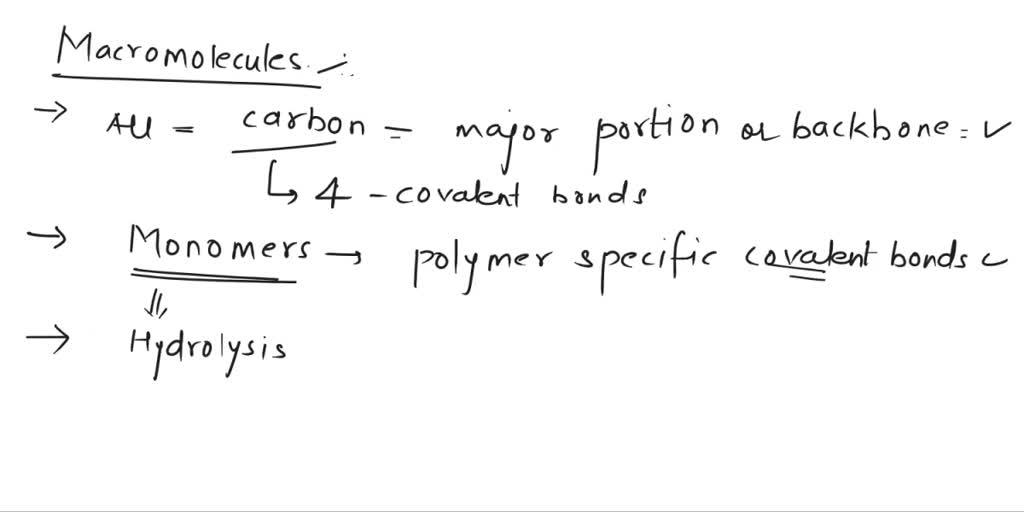 Macromolecules :-
→ All = carbon = major portion or backbone = ✓
↳ 4 - covalent bonds
→ Monomers → polymer specific covalent bonds
⇓
→ Hydrolysis